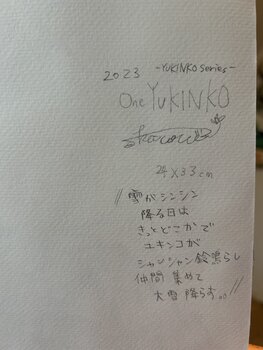 2023 -YUKINKO series-
One YUKINKO
24×33cm
雪がシンシン
降る日は
きっとどこかで
ユキンコが
シャンシャン鈴鳴らし
仲間 集めて
大雪 降らす。。